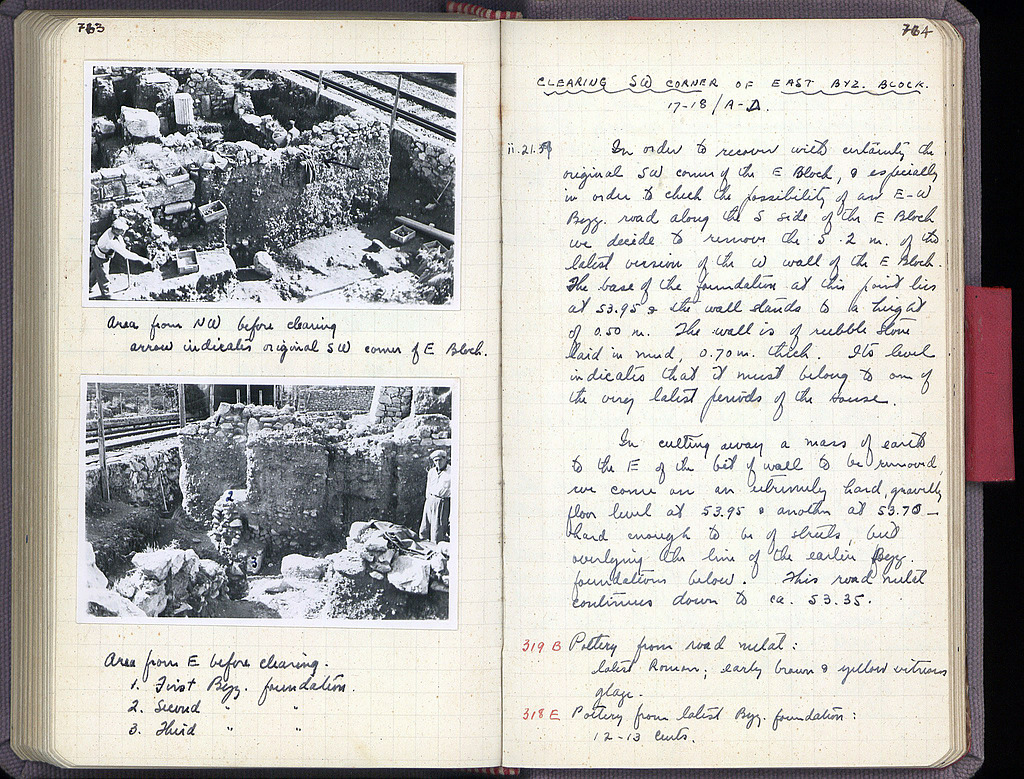 763
Area from NW before clearing
arrow indicates original SW corner of E Block.
2
Area from E before clearing.
1. First Byz. foundation.
2. Second " "
3. Third " "
764
CLEARING SW CORNER OF EAST BYZ. BLOCK.
17-18/A-Δ.
ii.21.39 In order to recover with certainty the
original SW corner of the E Block, & especially
in order to check the possibility of an E-W
Byz. road along the S side of the E Block
we decide to remove the S. 2 m. of the
latest version of the W wall of the E Block.
The base of the foundation at this point lies
at 53.95 & the wall stands to a height
of 0.50 m. The wall is of rubble stone
laid in mud, 0.70 m. thick. Its level
indicates that it must belong to one of
the very latest periods of the House.
In cutting away a mass of earth
to the E of the bit of wall to be removed,
we come on an extremely hard, gravelly
floor level at 53.95 & another at 53.70 —
hard enough to be of streets, but
overlying the line of the earlier Byz.
foundations below. This road metal
continues down to ca. 53.35.
319 B Pottery from road metal:
latest Roman; early brown & yellow vitreous
glaze.
318 E Pottery from latest Byz. foundation:
12-13 cents.